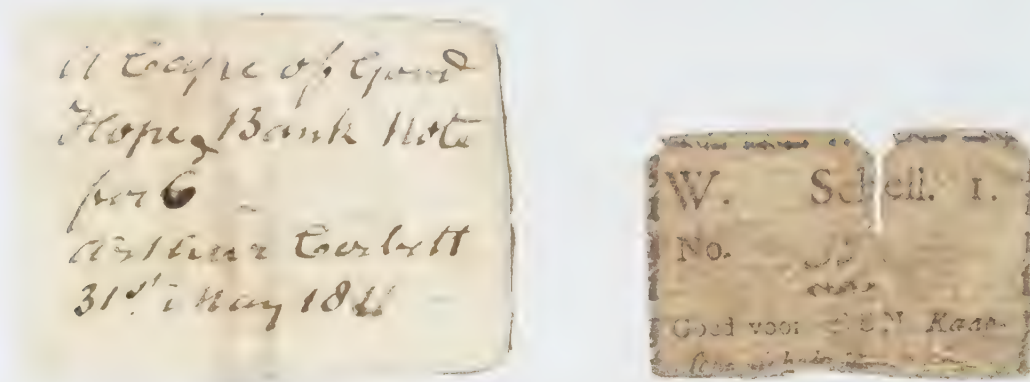 A Cape of Good
Hope Bank Note
for 6
Arthur Corbett
31st May
W. Schell. 1.
No.
Goed voor EEN Kaap-